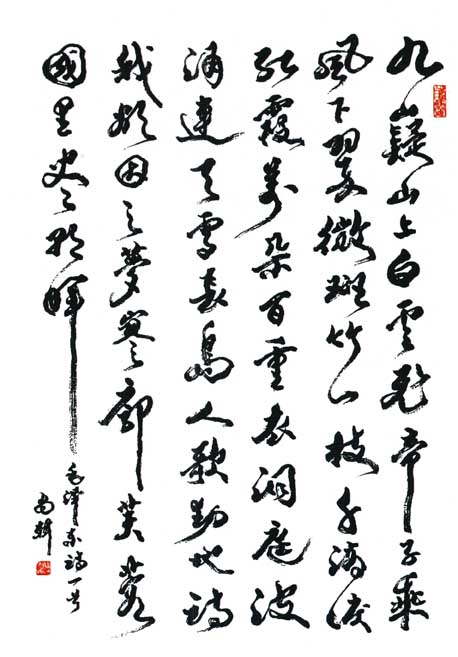 九嶷山上白雲飛帝子乘
風下翠微斑竹一枝千滴淚
紅霞萬朵百重衣洞庭波
涌連天雪長島人歌動地詩
我欲因之夢寥廓芙蓉
國里尽朝暉
毛澤東詩一首